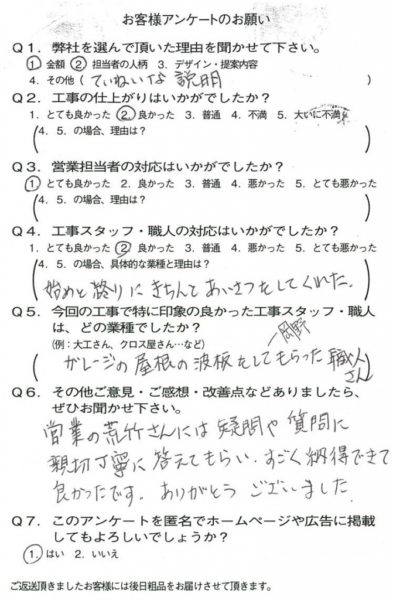 お客様アンケートのお願い
Q1．弊社を選んで頂いた理由を聞かせて下さい。
①金額 ②担当者の人柄 3．デザイン・提案内容
4．その他（ていねいな説明）
Q2．工事の仕上がりはいかがでしたか？
1．とても良かった ②良かった 3．普通 4．不満 5．大いに不満
（4．5．の場合、理由は？）
Q3．営業担当者の対応はいかがでしたか？
①とても良かった 2．良かった 3．普通 4．悪かった 5．とても悪かった
（4．5．の場合、理由は？）
Q4．工事スタッフ・職人の対応はいかがでしたか？
1．とても良かった ②良かった 3．普通 4．悪かった 5．とても悪かった
（4．5．の場合、具体的な業種と理由は？
始めと終りにきちんとあいさつをしてくれた。）
Q5．今回の工事で特に印象の良かった工事スタッフ・職人
は、どの業種でしたか？
（例：大工さん、クロス屋さん…など）
岡野
（ガレージの屋根の波板をしてもらった職人
さん）
Q6．その他ご意見・ご感想・改善点などありましたら、
ぜひお聞かせ下さい。
営業の荒竹さんには疑問や質問に
親切丁寧に答えてもらい、すごく納得できて
良かったです。ありがとうございました。
Q7．このアンケートを匿名でホームページや広告に掲載
してもよろしいでしょうか？
①はい 2．いいえ
ご返送頂きましたお客様には後日粗品をお届けさせて頂きます。